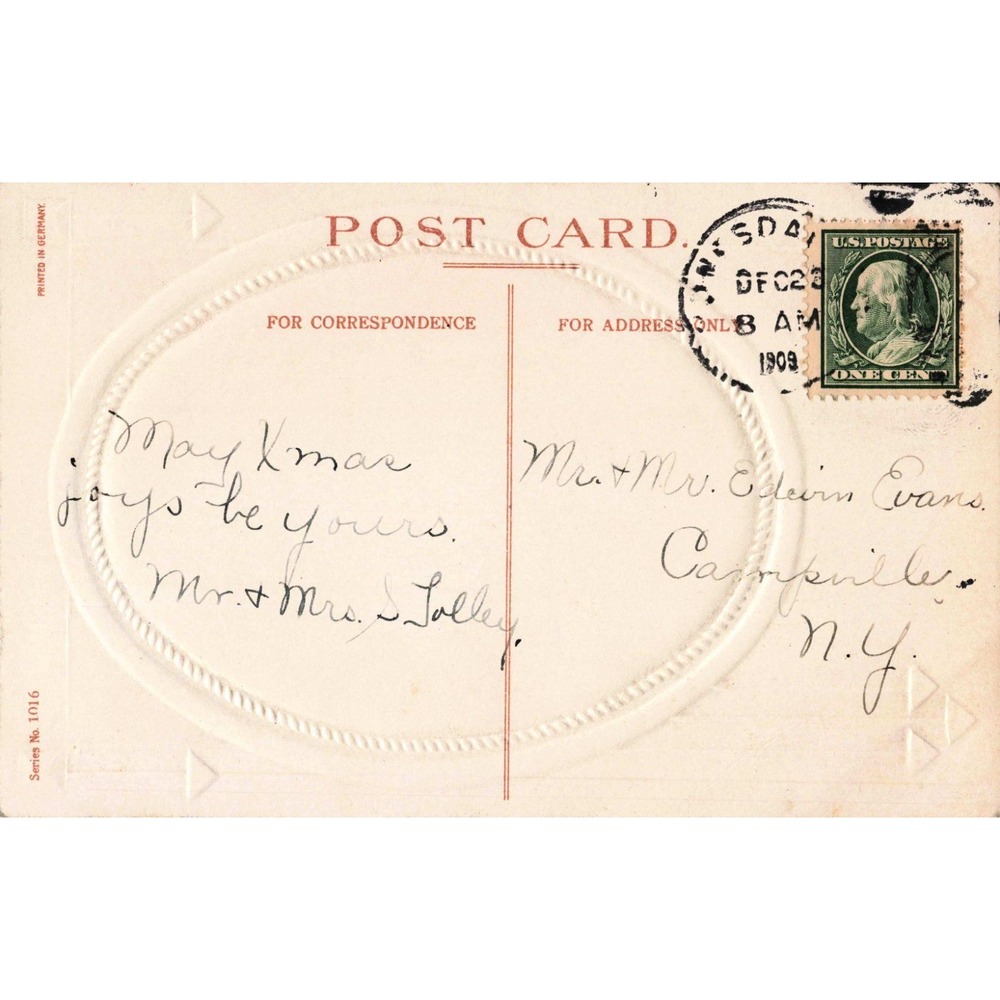 PRINTED IN GERMANY.
POST CARD.
DEC 23
8 AM
1909
U.S. POSTAGE
ONE CENT
FOR CORRESPONDENCE
FOR ADDRESS ONLY
May Xmas
joys be yours.
Mr. & Mrs. S Tolley.
Mr. & Mr. Edwin Evans.
Campville.
N.Y.
Series No. 1016